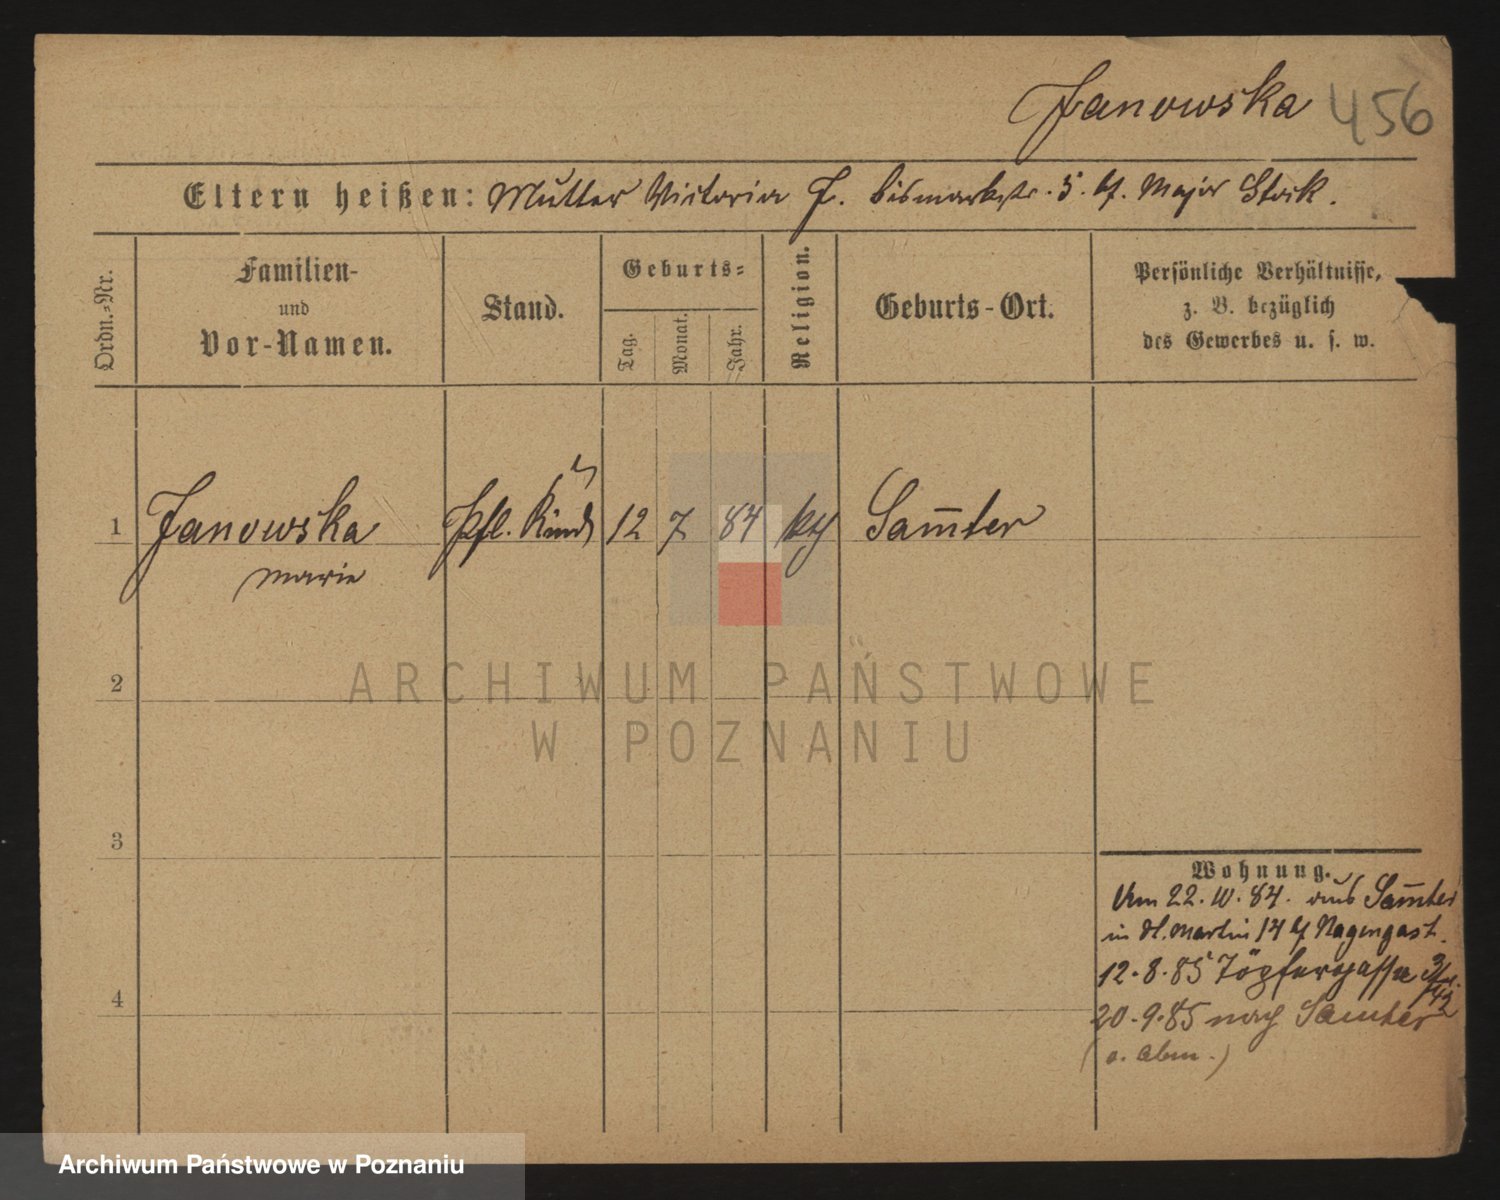 Janowska 456
Eltern heißen: Mutter Victoria J. Bismarckstr. 5. b/. Major Stock.
Ordn.-Nr.
Familien-
und
Vor-Namen.
Stand.
Geburts-
Tag.
Monat.
Jahr.
Religion.
Geburts-Ort.
Persönliche Verhältnisse,
z. B. bezüglich
des Gewerbes u. s. w.
1 Janowska Pfl. Kind 12 7 84 kth Samter
Marie
2
3
4
Wohnung.
Am 22. 10. 84. aus Samter
in St. Martin 14 b/ Nagengast.
12. 8. 85 Töpfergasse 3
20. 9. 85 nach Samter
(o. Abm.)
ARCHIWUM PAŃSTWOWE
W POZNANIU
Archiwum Państwowe w Poznaniu